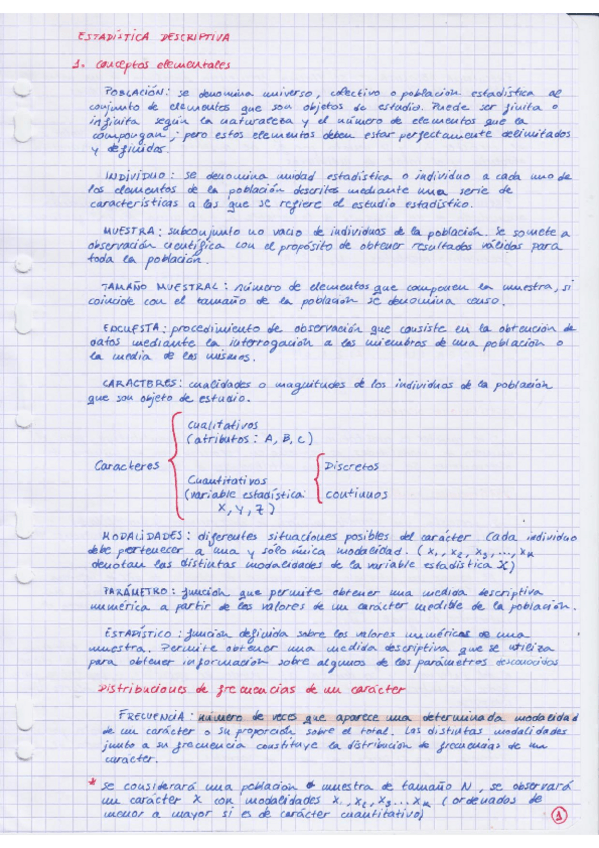 ESTADÍSTICA DESCRIPTIVA
1. Conceptos elementales
POBLACIÓN: se denomina universo, colectivo o población estadística al
conjunto de elementos que son objetos de estudio. Puede ser finita o
infinita según la naturaleza y el número de elementos que la
compongan; pero estos elementos deben estar perfectamente delimitados
y definidos.
INDIVIDUO: se denomina unidad estadística o individuo a cada uno de
los elementos de la población descritos mediante una serie de
características a las que se refiere el estudio estadístico.
MUESTRA: subconjunto no vacío de individuos de la población. Se somete a
observación científica con el propósito de obtener resultados válidos para
toda la población.
TAMAÑO MUESTRAL: número de elementos que componen la muestra, si
coincide con el tamaño de la población se denomina censo.
ENCUESTA: procedimiento de observación que consiste en la obtención de
datos mediante la interrogación a los miembros de una población o
la media de los mismos.
CARACTERES: cualidades o magnitudes de los individuos de la población
que son objeto de estudio.
Caracteres
Cualitativos
(atributos: A, B, C)
Cuantitativos
(variable estadística:
X, Y, Z)
Discretos
continuos
MODALIDADES: diferentes situaciones posibles del carácter. Cada individuo
debe pertenecer a una y sólo única modalidad. (x₁, x₂, x₃, ..., xₖ
denotan las distintas modalidades de la variable estadística X)
PARÁMETRO: función que permite obtener una medida descriptiva
numérica a partir de los valores de un carácter medible de la población.
ESTADÍSTICO: función definida sobre los valores numéricos de una
muestra. Permite obtener una medida descriptiva que se utiliza
para obtener información sobre algunos de los parámetros desconocidos
Distribuciones de frecuencias de un carácter
FRECUENCIA: número de veces que aparece una determinada modalidad
de un carácter o su proporción sobre el total. Las distintas modalidades
junto a su frecuencia constituye la distribución de frecuencias de un
carácter.
* Se considerará una población o muestra de tamaño N, se observará
un carácter X con modalidades x₁, x₂, x₃ ... xₖ (ordenados de
menor a mayor si es de carácter cuantitativo)
1